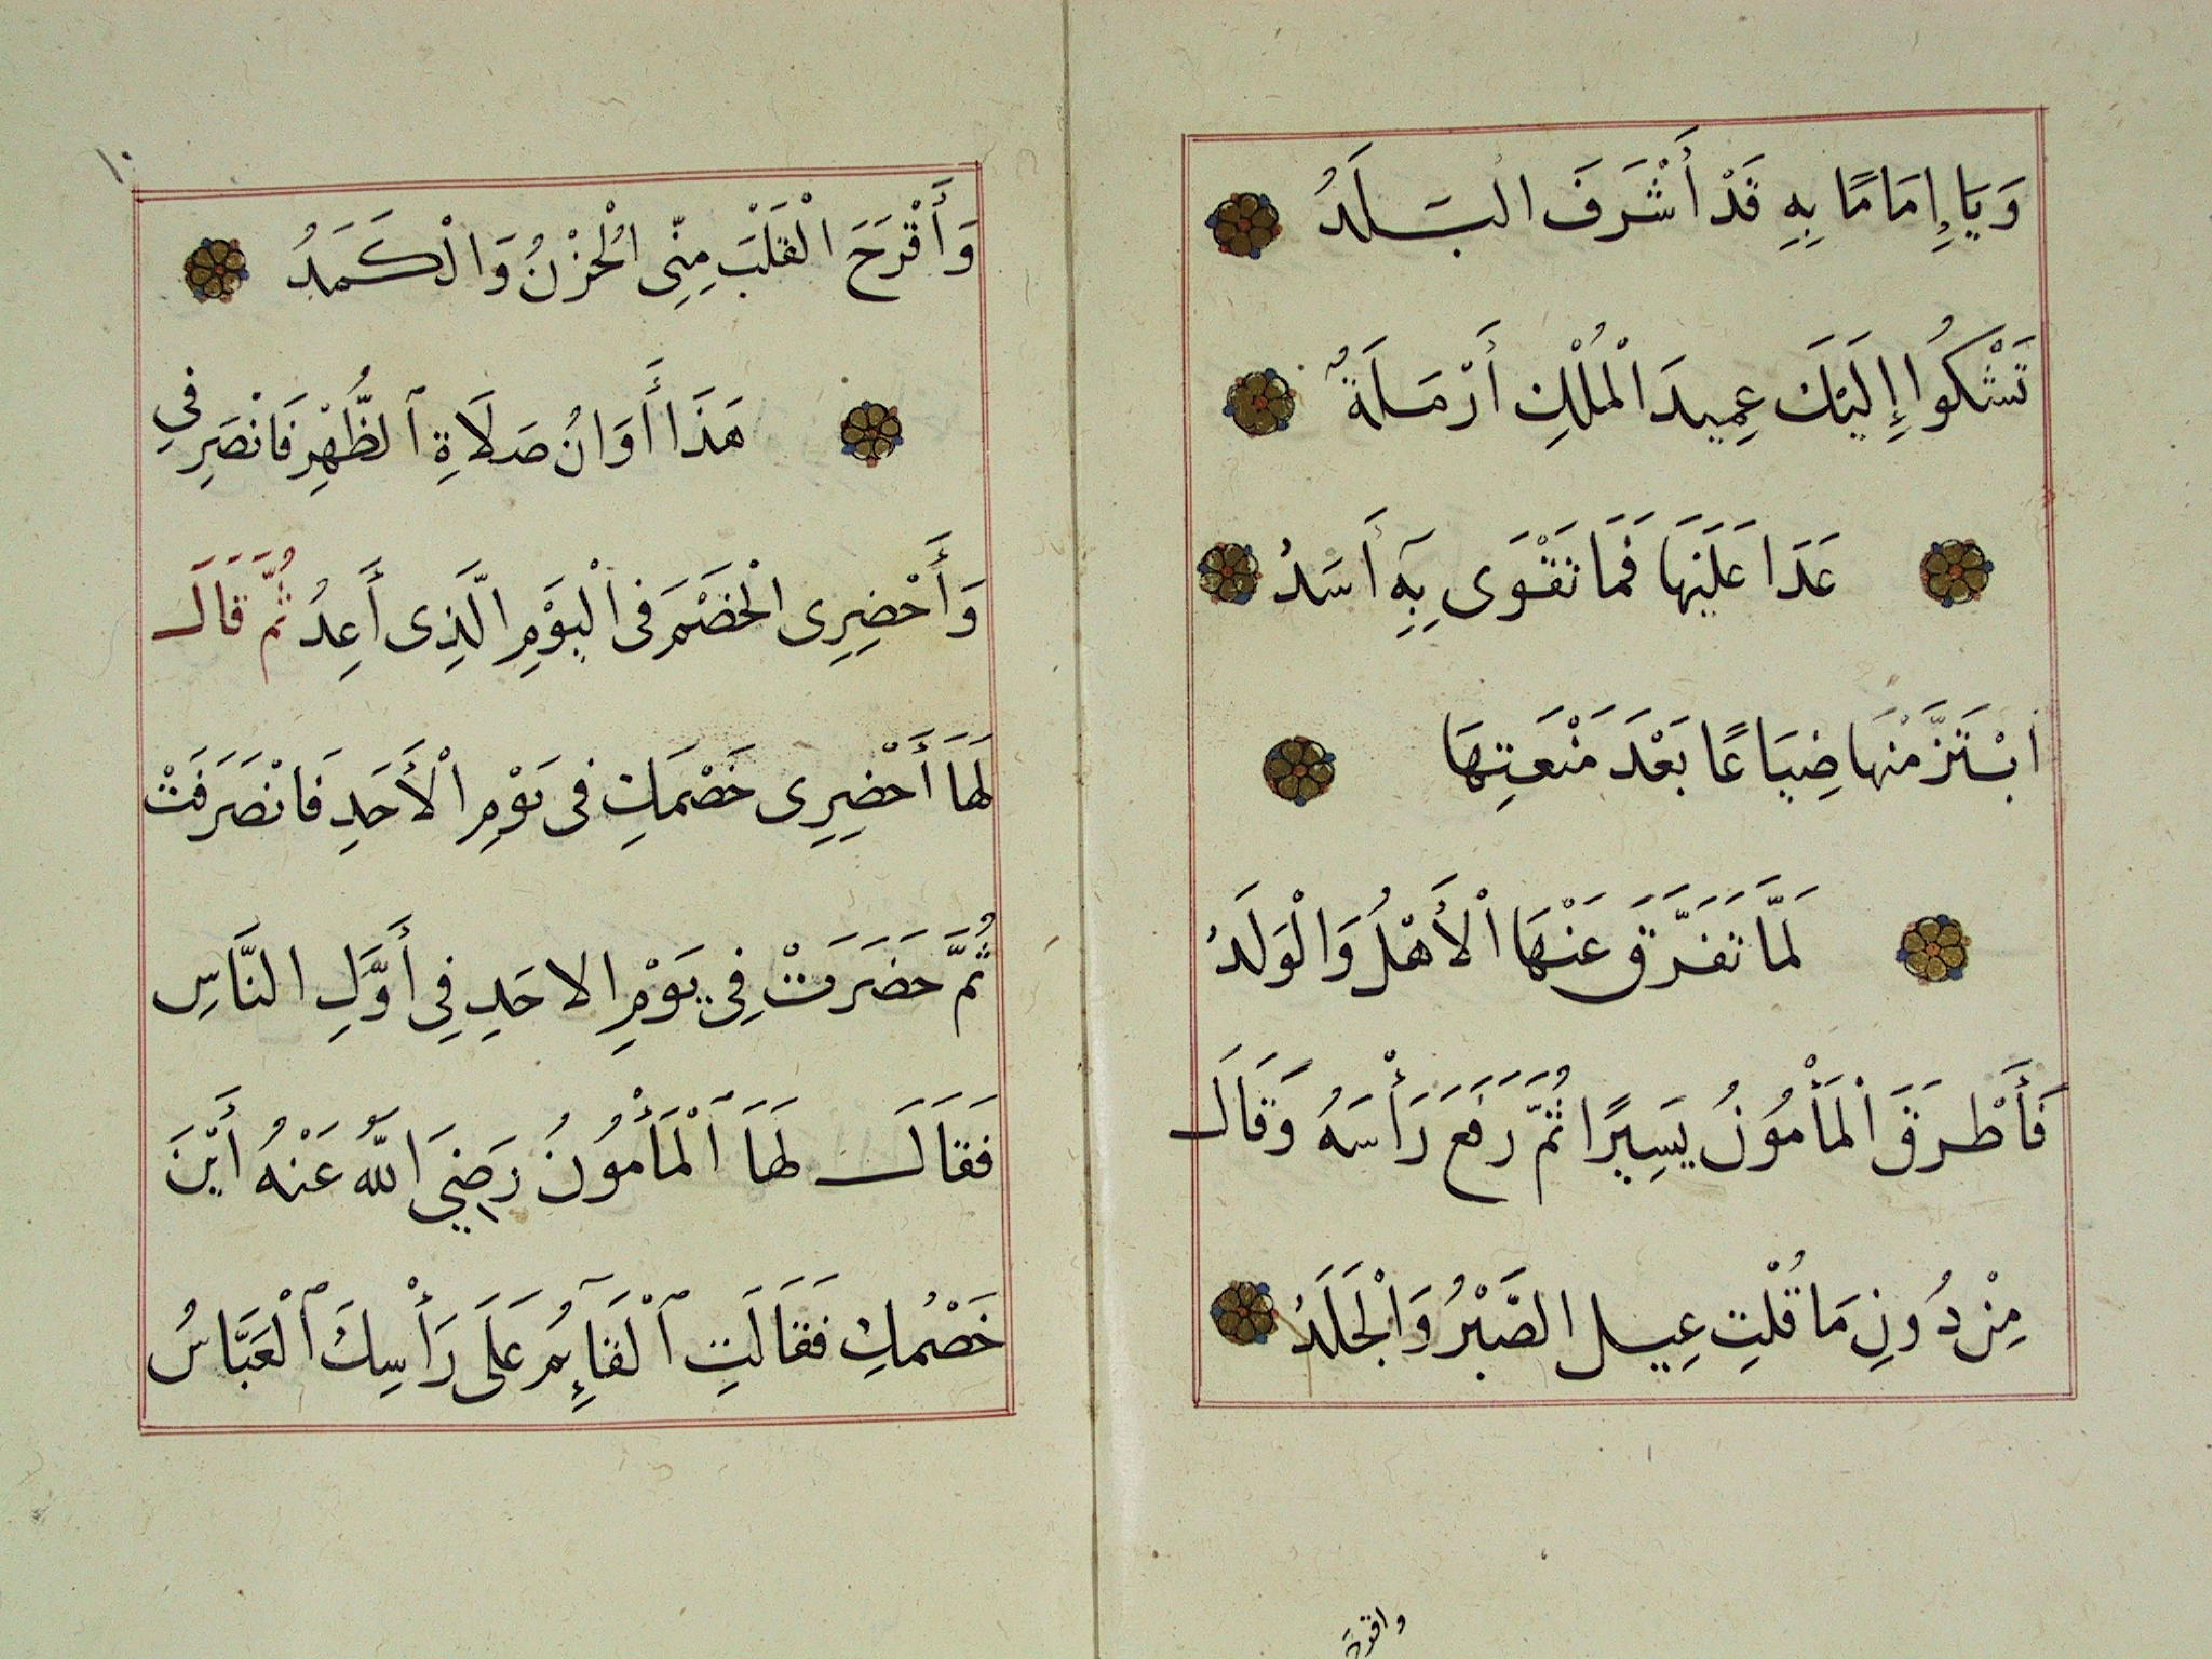 وَيَا إِمَامًا بِهِ قَدْ أَشْرَفَ البَلَدُ
تَشْكُوا إِلَيْكَ عِمِيدَ الْمُلْكِ أَرْمَلَةٌ
عَدَا عَلَيْهَا فَمَا تَقْوَى بِهِ أَسَدُ
ابْتَزَّ مْنْهَا ضِيَاعًا بَعْدَ مَنْعَتِهَا
لَمَّا تَفَرَّقَ عَنْهَا الْأَهْلُ وَالْوَلَدُ
فَأَطْرَقَ الْمَأْمُونُ يَسِيرًا ثُمَّ رَفَعَ رَأْسَهُ وَقَالَ
مِنْ دُونِ مَا قُلْتِ عِيلَ الصَّبْرُ وَالْجَلَدُ
واقرح
١٠
وَأَقْرَحَ الْقَلْبَ مِنِّى الْحُزْنُ وَالْكَمَدُ
هَذَا أَوَانُ صَلَاةِ ٱلظُّهْرِ فَانْصَرِفِي
وَأَحْضِرِى الْخَصْمَ فى الْيَوْمِ الَّذِى أَعِدُ ثُمَّ قَالَ
لَهَا أَحْضِرِى خَصْمَكِ فى يَوْمِ الْأَحَدِ فَانْصَرَفَتْ
ثُمَّ حَضَرَتْ فِي يَوْمِ الاحَدِ فِي أَوَّلِ النَّاسِ
فَقَالَ لَهَا ٱلْمَأْمُونُ رَضِيَ اللَّهُ عَنْهُ أَيْنَ
خَصْمُكِ فَقَالَتِ ٱلْقَآئِمُ عَلَى رَأْسِكَ ٱلْعَبَّاسُ